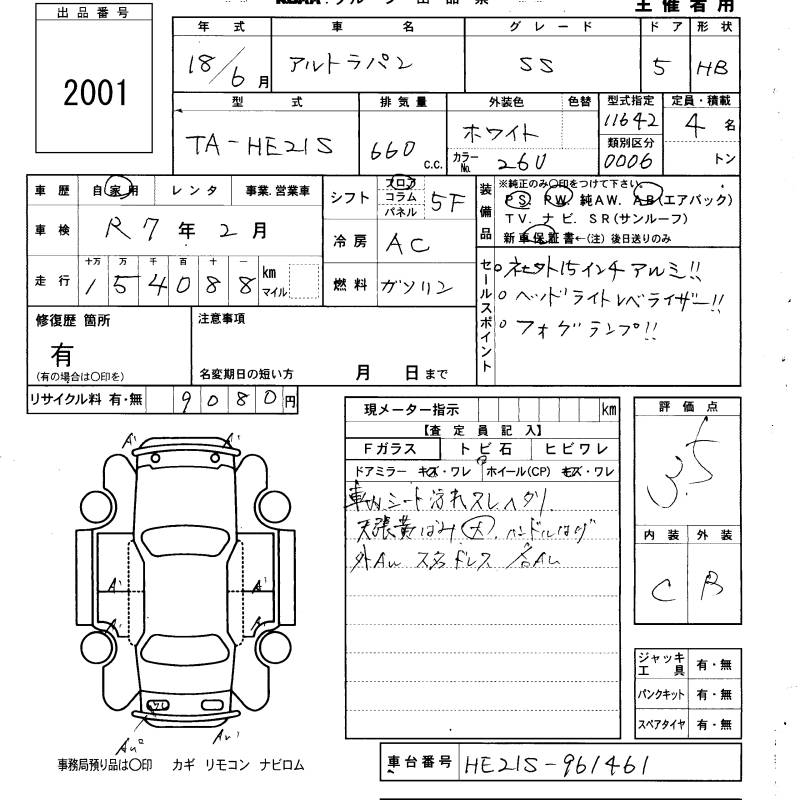 出品番号
主催者用
2001
年式 車名 グレード ドア 形状
18/6月 アルトラパン SS 5 HB
型式 排気量 外装色 色替 型式指定 定員・積載
TA-HE21S 660 c.c. ホワイト 11642 4名
カラーNo. 26U 類別区分 0006 トン
車歴 自家用 レンタ 事業.営業車
シフト フロア コラム パネル 5F
装備品 ※純正のみ〇印をつけて下さい。
PS PW 純AW. AB(エアバック)
TV. ナビ. SR(サンルーフ)
新車保証書←(注) 後日送りのみ
車検 R7年2月
冷房 AC
走行 十万 万 千 百 十 一
154088 km マイル
燃料 ガソリン
セールスポイント
○社外15インチアルミ!!
○ヘッドライトレベライザー!!
○フォグランプ!!
修復歴 箇所 注意事項
有
(有の場合は〇印を) 名変期日の短い方 月 日まで
リサイクル料 有・無 9080円
現メーター指示 km
【査定員記入】
Fガラス トビ石 ヒビワレ
ドアミラー キズ・ワレ ホイール(CP) キズ・ワレ
車内シート汚れスレヘタリ.
天張黄ばみ大.ハンドルはげ
外AU ドレス 各AU
評価点
3.5
内装 外装
C B
A' A'
A' A'
A' A'
AU² AU'
ジャッキ 工具 有・無
パンクキット 有・無
スペアタイヤ 有・無
事務局預り品は〇印 カギ リモコン ナビロム
車台番号 HE21S-961461